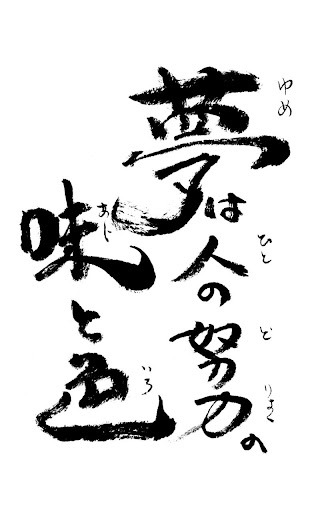 夢は人の努力の
ゆめ ひと ど りょく
味と色
あじ いろ